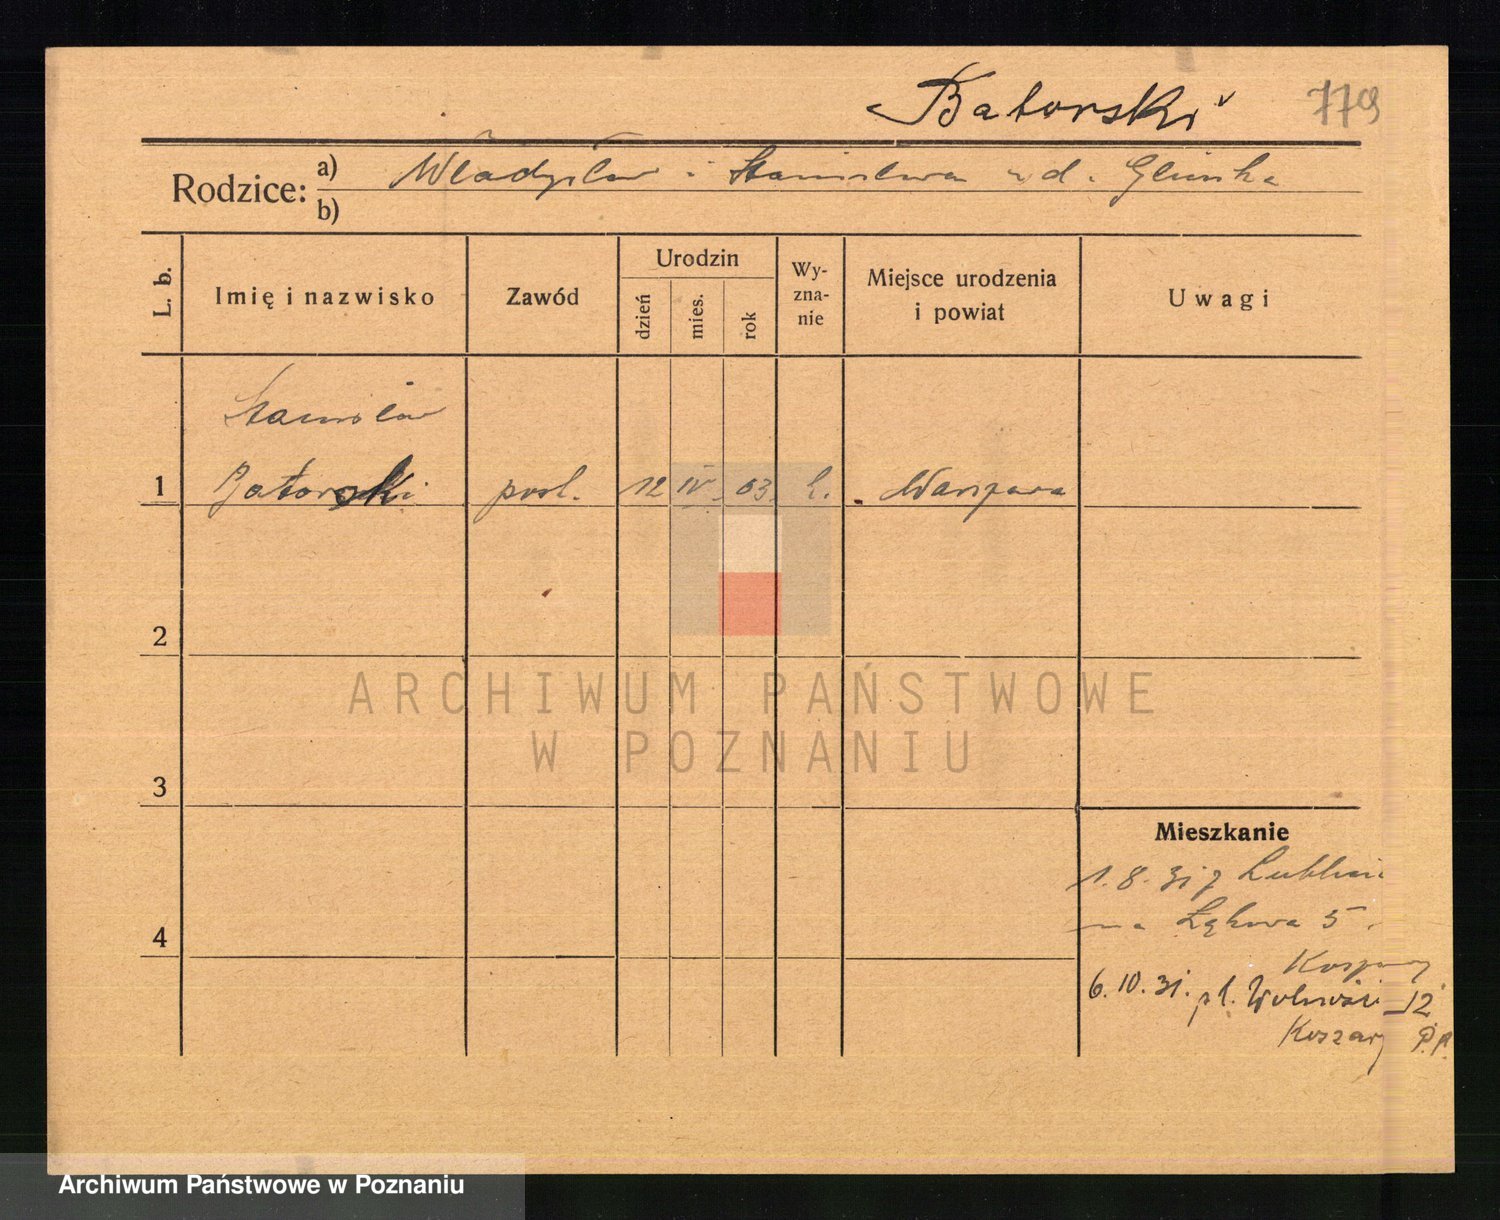 Batorski 779
Rodzice: a) Władysław i Stanisława z d. Glinka
b)
L. b. Imię i nazwisko Zawód Urodzin dzień mies. rok Wy-zna-nie Miejsce urodzenia i powiat Uwagi
Stanisław
1 Batorski post. 12 IV 03 k. Warszawa
2
3
Mieszkanie
1.8.31 z Lublina
4 na Łąkowa 5
Koszary
6.10.31. pl. Wolności 12
Koszary P.P.
ARCHIWUM PAŃSTWOWE
W POZNANIU
Archiwum Państwowe w Poznaniu